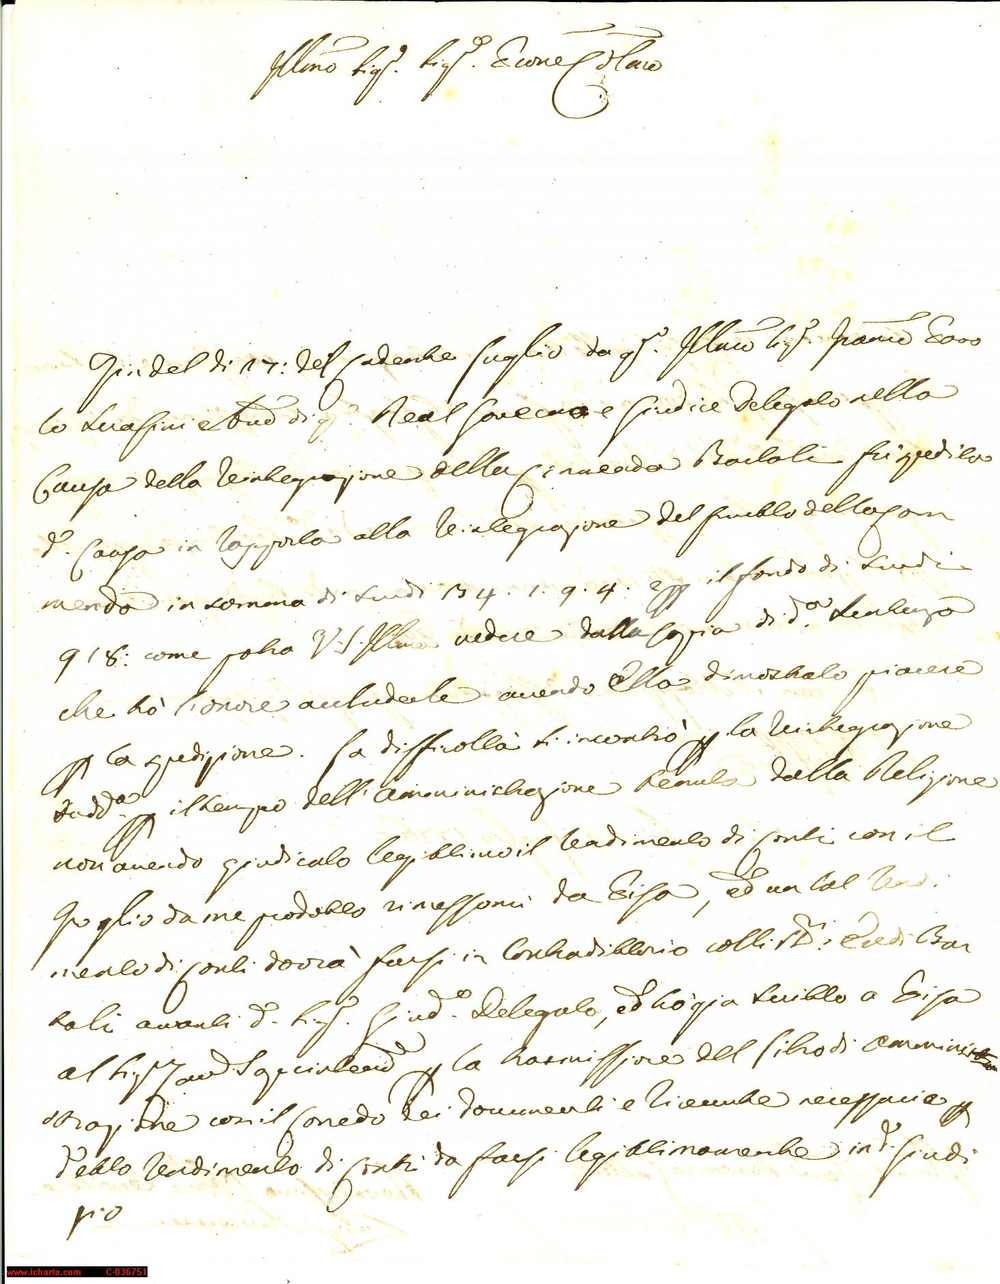 Illmo Sigr. Sigr. Prone Colmo
del dì 17: del cadente Luglio da qo. Illmo Sigr.
to Serafini e Aud di qo. Real Governo e Giudice Delegato nella
Causa della Reintegrazione della Commenda Bartali fù spedita
d. Causa in rapporto alla Reintegrazione del frutto della Com
menda in somma di Scudi 134. 1. 9. 4. il fondo di Scudi
918: come potrà V. S. Illma vedere dalla Copia di da. Sentenza
che hò l'onore accluderle avendo Ella dimostrato piacere
p la spedizione. La difficoltà si incontrò p la Reintegrazione
sudda. p il tempo dell'amministrazione tenuta dalla Religione
non avendo giudicato legittimo il Rendimento di Conti con il
foglio da me prodotto rimessomi da Pisa, ed un tal Rendi
mento di Conti dovrà farsi in Contradittorio colli SSri: Eredi Bar
tali avanti do. Sigr. Giude. Delegato, ed hò già scritto a Pisa
al Sigr. p la trasmissione del Libro di amminis
trazione con il Corredo dei documenti e ricevute necessarie p
detto Rendimento di Conti da farsi legittimamente in do. Giudi
zio
www.icharta.com C-036751